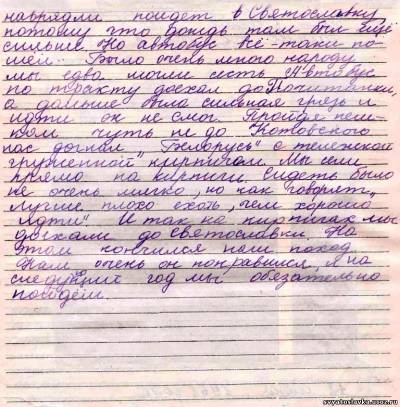 навряд ли пойдет в Святославку
потому что дождь там был ещё
сильнее. Но автобус всё-таки по-
шел. Было очень много народу
мы едва могли сесть. Автобус
по тракту доехал до Почитанки,
а дальше была сильная грязь и
идти он не смог. Пройдя пеш-
ком чуть не до Котовского
нас догнал "Белорусь" с тележкой
груженной кирпичом. Мы сели
прямо на кирпичи. Сидеть было
не очень мягко, но как говорят,
"лучше плохо ехать, чем хорошо
идти". И так на кирпичах мы
доехали до Святославки. На
этом кончился наш поход.
Нам очень он понравился, и на
следущий год мы обязательно
пойдём.
svyatoslavka.ucoz.ru